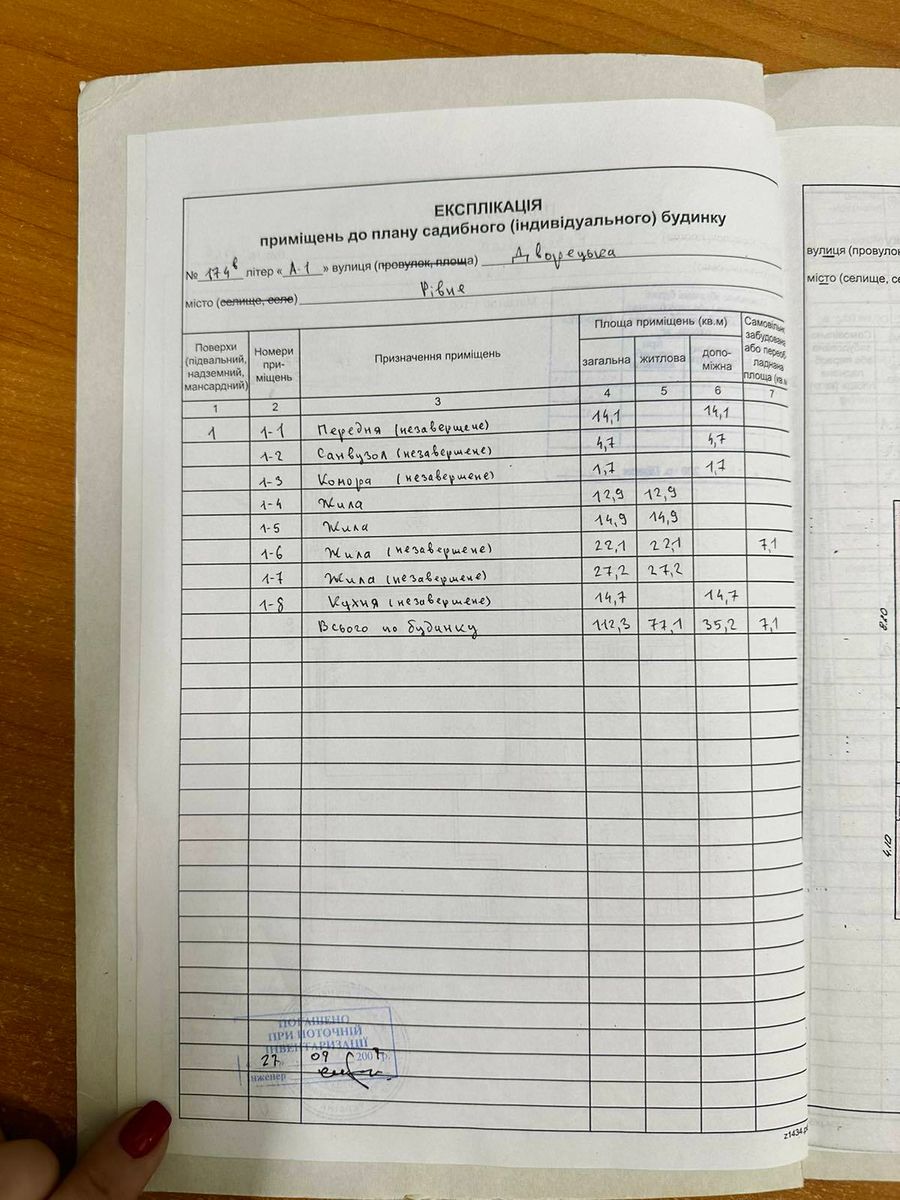 ЕКСПЛІКАЦІЯ
приміщень до плану садибного (індивідуального) будинку
№ 174в літер « А-1 » вулиця (провулок, площа) Дворецька
місто (селище, село) Рівне
Поверхи (підвальний, надземний, мансардний) Номери при-міщень Призначення приміщень Площа приміщень (кв.м) Самовільно забудована або переоб ладнана площа (кв.м
загальна житлова допо-міжна
1 2 3 4 5 6 7
1 1-1 Передня (незавершене) 14,1 14,1
1-2 Санвузол (незавершене) 4,7 4,7
1-3 Комора (незавершене) 1,7 1,7
1-4 Жила 12,9 12,9
1-5 Жила 14,9 14,9
1-6 Жила (незавершене) 22,1 22,1 7,1
1-7 Жила (незавершене) 27,2 27,2
1-8 Кухня (незавершене) 14,7 14,7
Всього по будинку 112,3 77,1 35,2 7,1
ПОГАШЕНО
ПРИ ПОТОЧНІЙ
ІНВЕНТАРИЗАЦІЇ
27 09 200 р.
інженер
z1434.p
вулиця (провулок
місто (селище, се
8.10
4.10